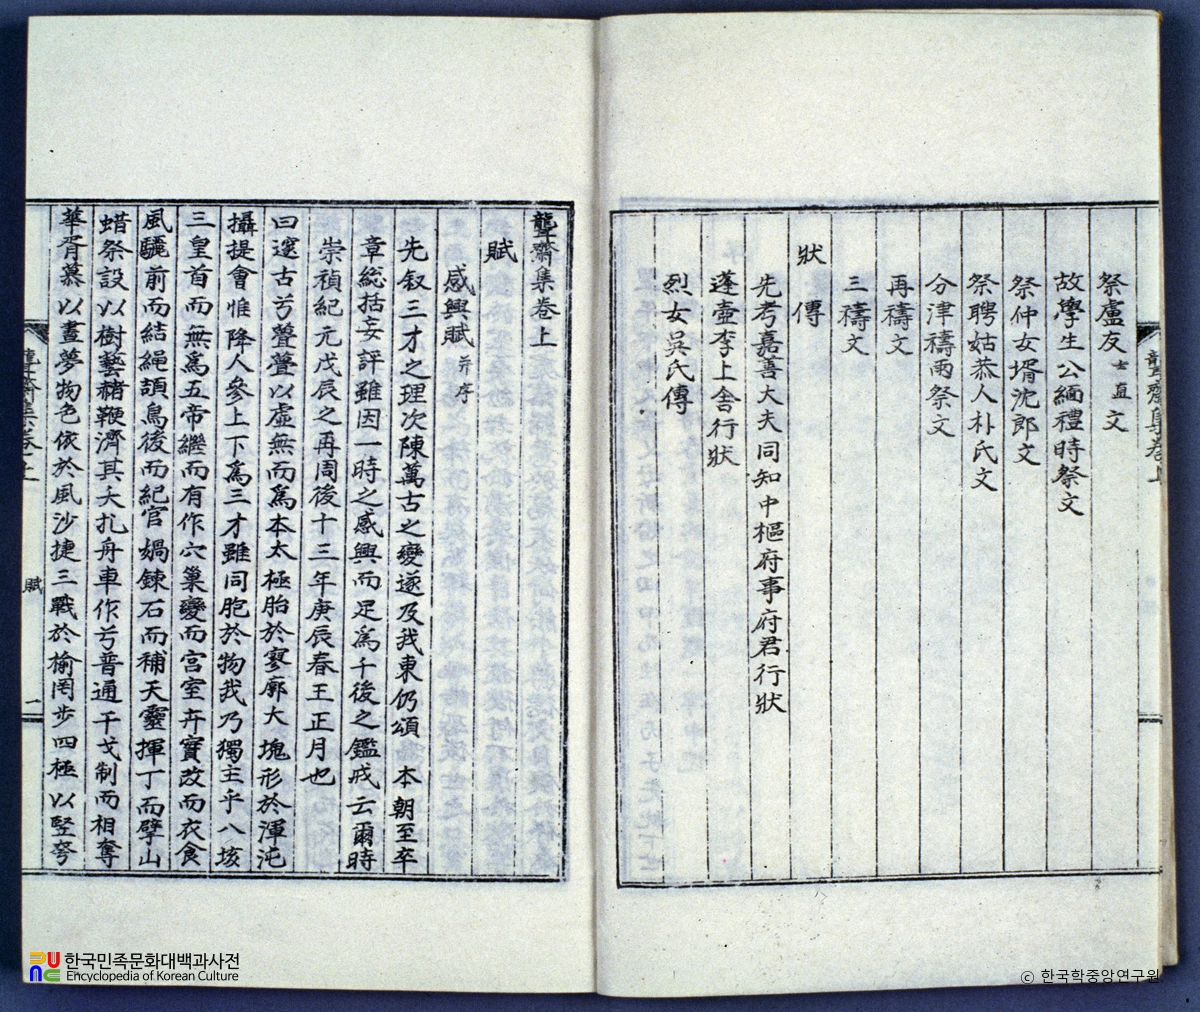 祭盧友士直文
故學生公緬禮時祭文
祭仲女壻沈郎文
祭聘姑恭人朴氏文
分津禱雨祭文
再禱文
三禱文
狀傳
先考嘉善大夫同知中樞府事府君行狀
蓬壺李上舍行狀
烈女吳氏傳
聾齋集卷上
聾齋集卷上
賦
感興賦并序
先叙三才之理次陳萬古之變遂及我東仍頌 本朝至卒
章総括妄評雖因一時之感興而足爲千後之鑑戒云爾時
崇禎紀元戊辰之再周後十三年庚辰春王正月也
曰邃古兮亹亹以虛無而爲本太極胎於寥廓大塊形於渾沌
攝提會惟降人參上下爲三才雖同胞於物我乃獨主乎八垓
三皇首而無爲五帝繼而有作穴巢變而宮室卉實改而衣食
風驪前而結繩頡鳥後而紀官媧鍊石而補天靈揮丁而擘山
蜡祭設以樹藝赭鞭濟其夭札舟車作兮普通干戈制而相奪
華胥慕以晝夢物色依於風沙捷三戰於榆罔步四極以竪夸
聾齋集卷上
賦
一
한국민족문화대백과사전
Encyclopedia of Korean Culture
ⓒ 한국학중앙연구원